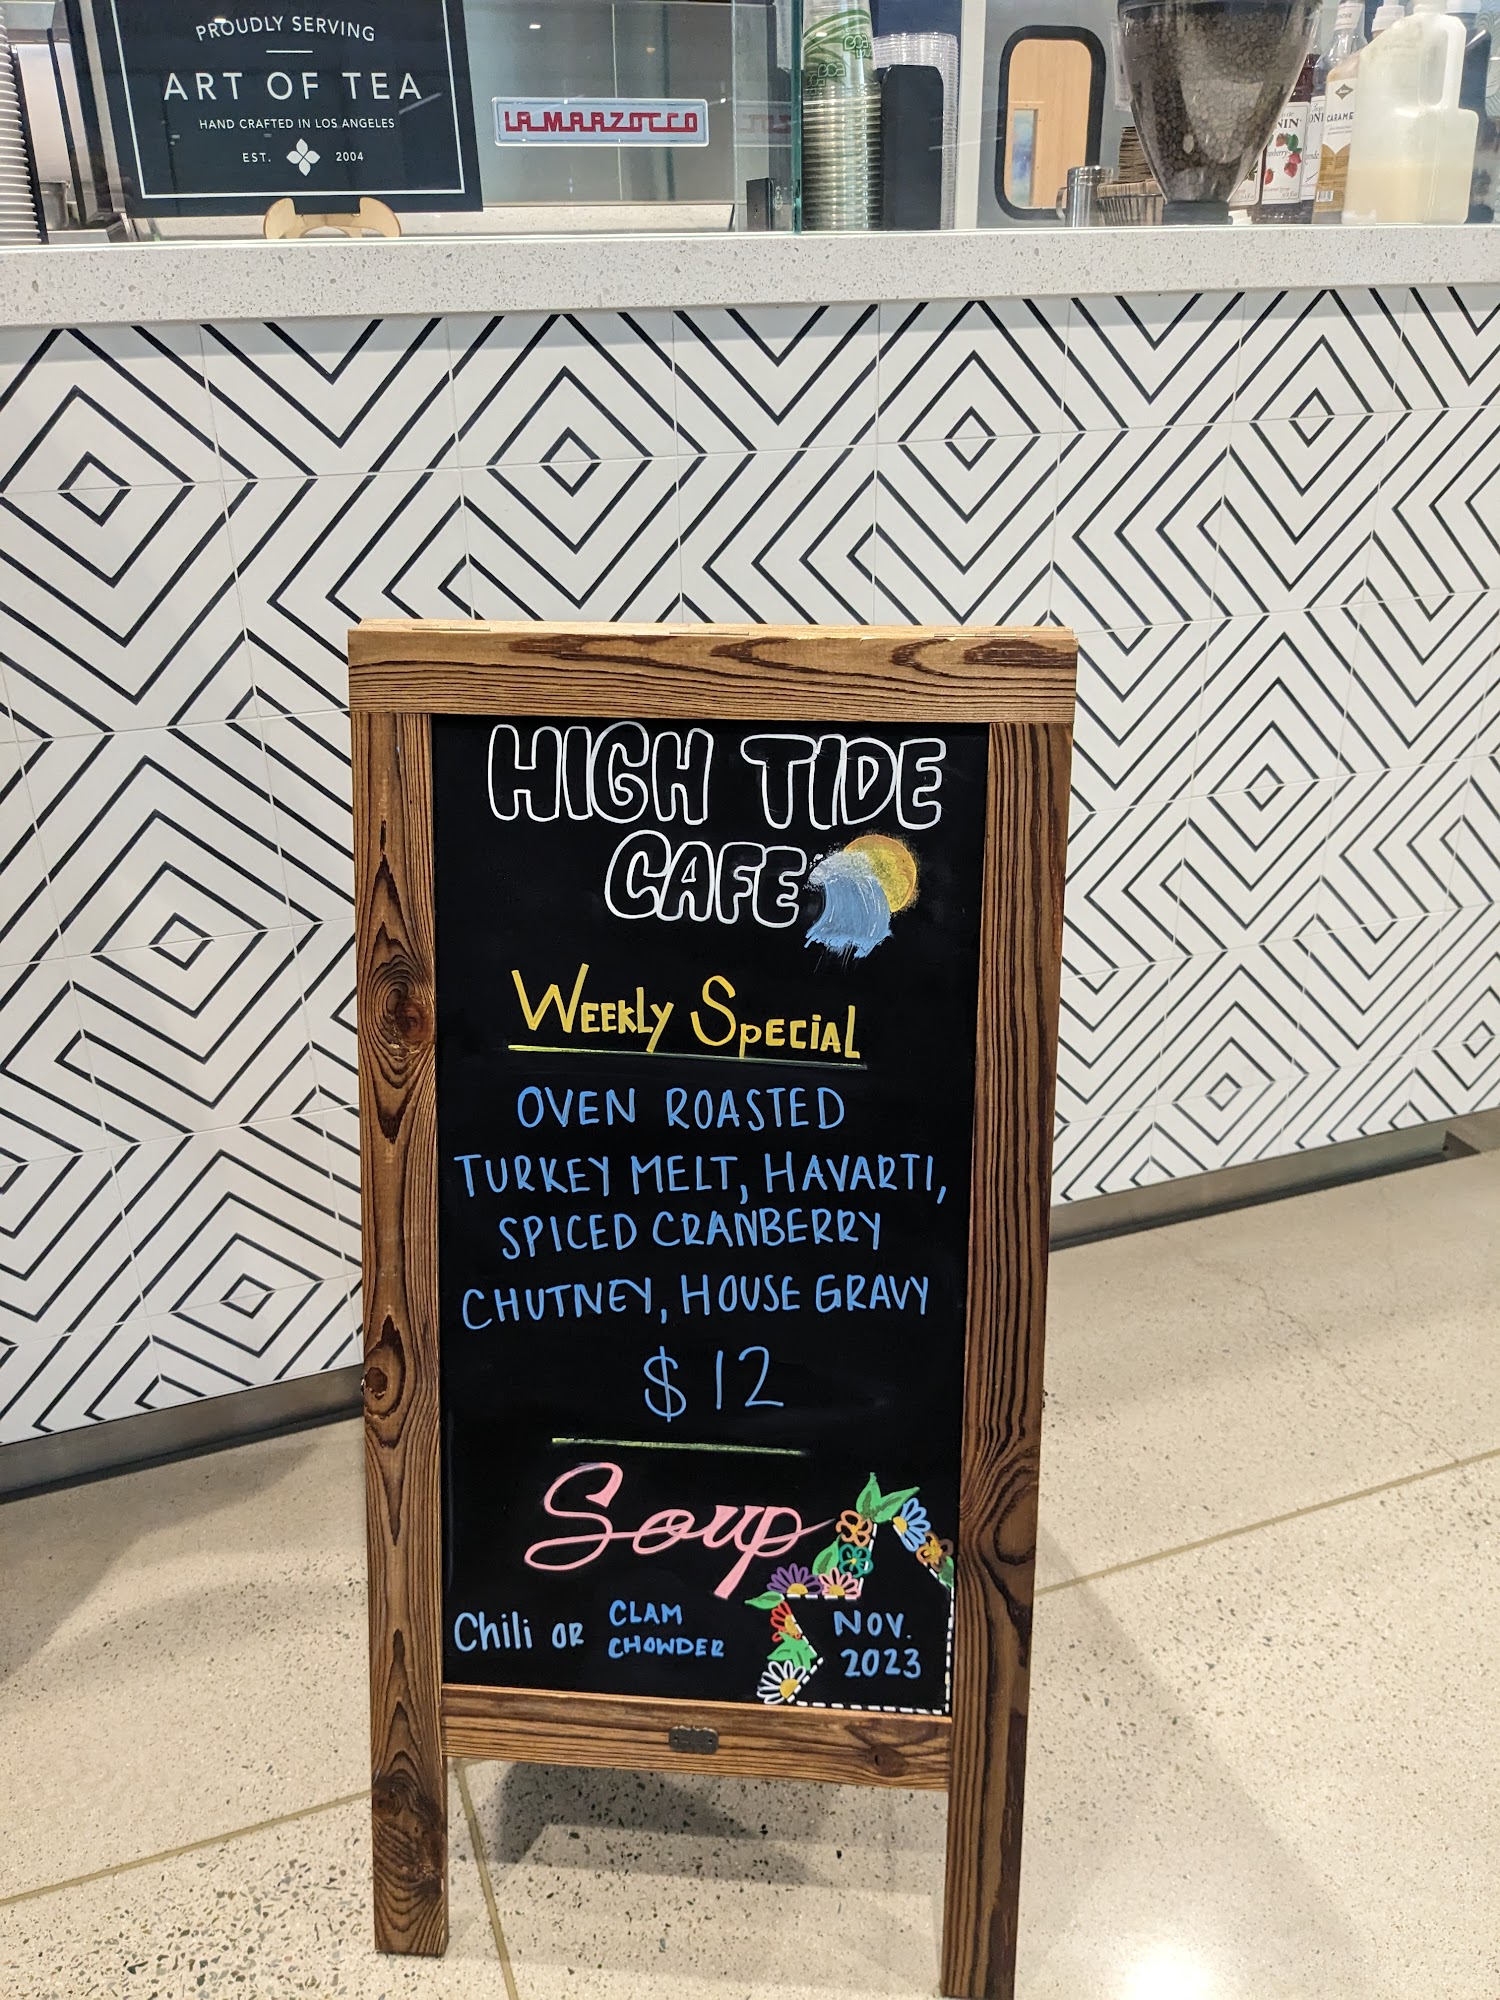 PROUDLY SERVING
ART OF TEA
HAND CRAFTED IN LOS ANGELES
EST. 2004
LA MARZOCCO
CARAME
HIGH TIDE
CAFE
WEEKLY SPECIAL
OVEN ROASTED
TURKEY MELT, HAVARTI,
SPICED CRANBERRY
CHUTNEY, HOUSE GRAVY
$12
Soup
Chili OR CLAM
CHOWDER
NOV.
2023